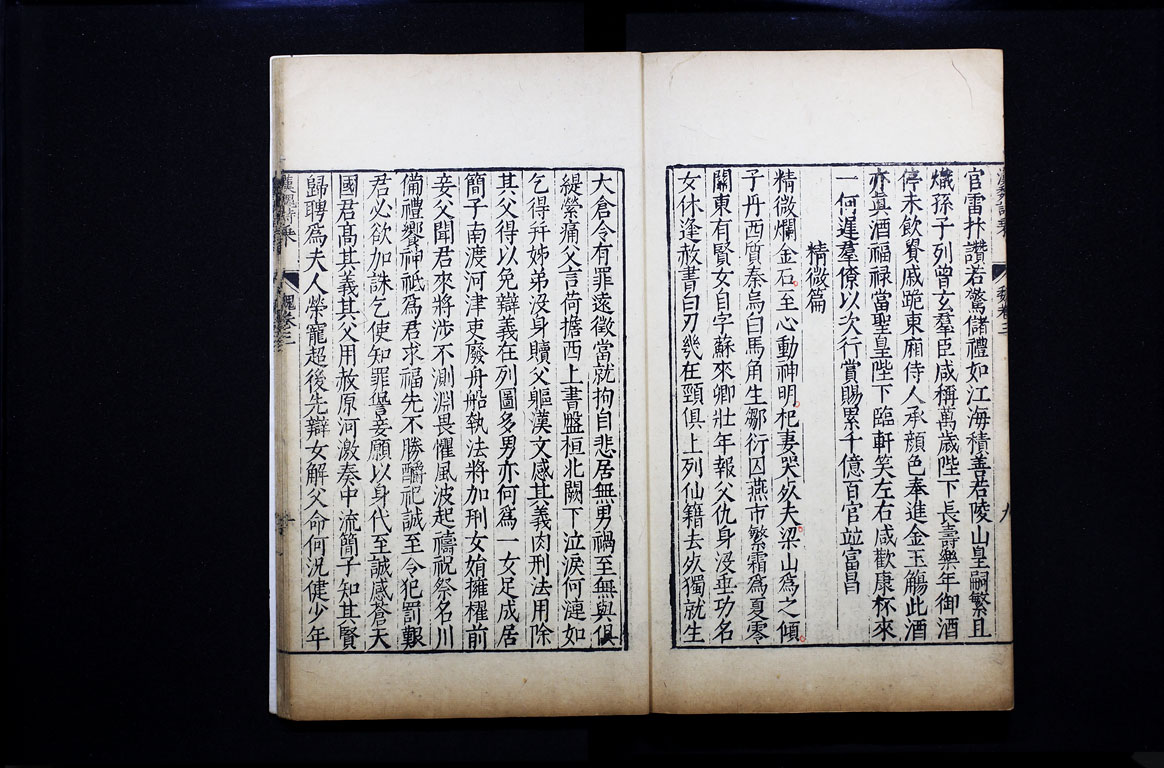 官雷抃讚若驚儲禮如江海積善若陵山皇嗣繁且
熾孫子列曾玄羣臣咸稱萬歲陛下長壽樂年御酒
停未飲貴戚跪東廂侍人承顏色奉進金玉觴此酒
亦真酒福禄當聖皇陛下臨軒笑左右咸歡康杯來
一何遲羣僚以次行賞賜累千億百官竝富昌
精微篇
精微爛金石至心動神明杞妻哭死夫梁山為之傾
子丹西質秦烏白馬角生鄒衍囚燕市繁霜為夏零
關東有賢女自字蘇來卿壯年報父仇身沒垂功名
女休逢赦書白刃幾在頸俱上列仙籍去死獨就生
大倉令有罪遠徵當就拘自悲居無男禍至無與俱
緹縈痛父言荷擔西上書盤桓北闕下泣淚何漣如
乞得并姊弟沒身贖父軀漢文感其義肉刑法用除
其父得以免辯義在列圖多男亦何為一女足成居
簡子南渡河津吏廢舟船執法將加刑女娟擁櫂前
妾父聞君來將涉不測淵畏懼風波起禱祝祭名川
備禮饗神祗為君求福先不勝釂祀誠至令犯罰艱
君必欲加誅乞使知罪諐妾願以身代至誠感蒼天
國君高其義其父用赦原河激奏中流簡子知其賢
歸聘為夫人榮寵超後先辯女解父命何況健少年
漢魏詩乘
魏卷三